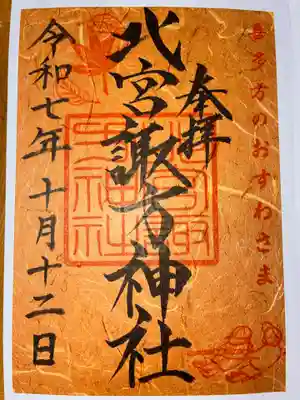 喜多方のおすわさま
奉拝
八宮諏方神社
令和七年十月十二日